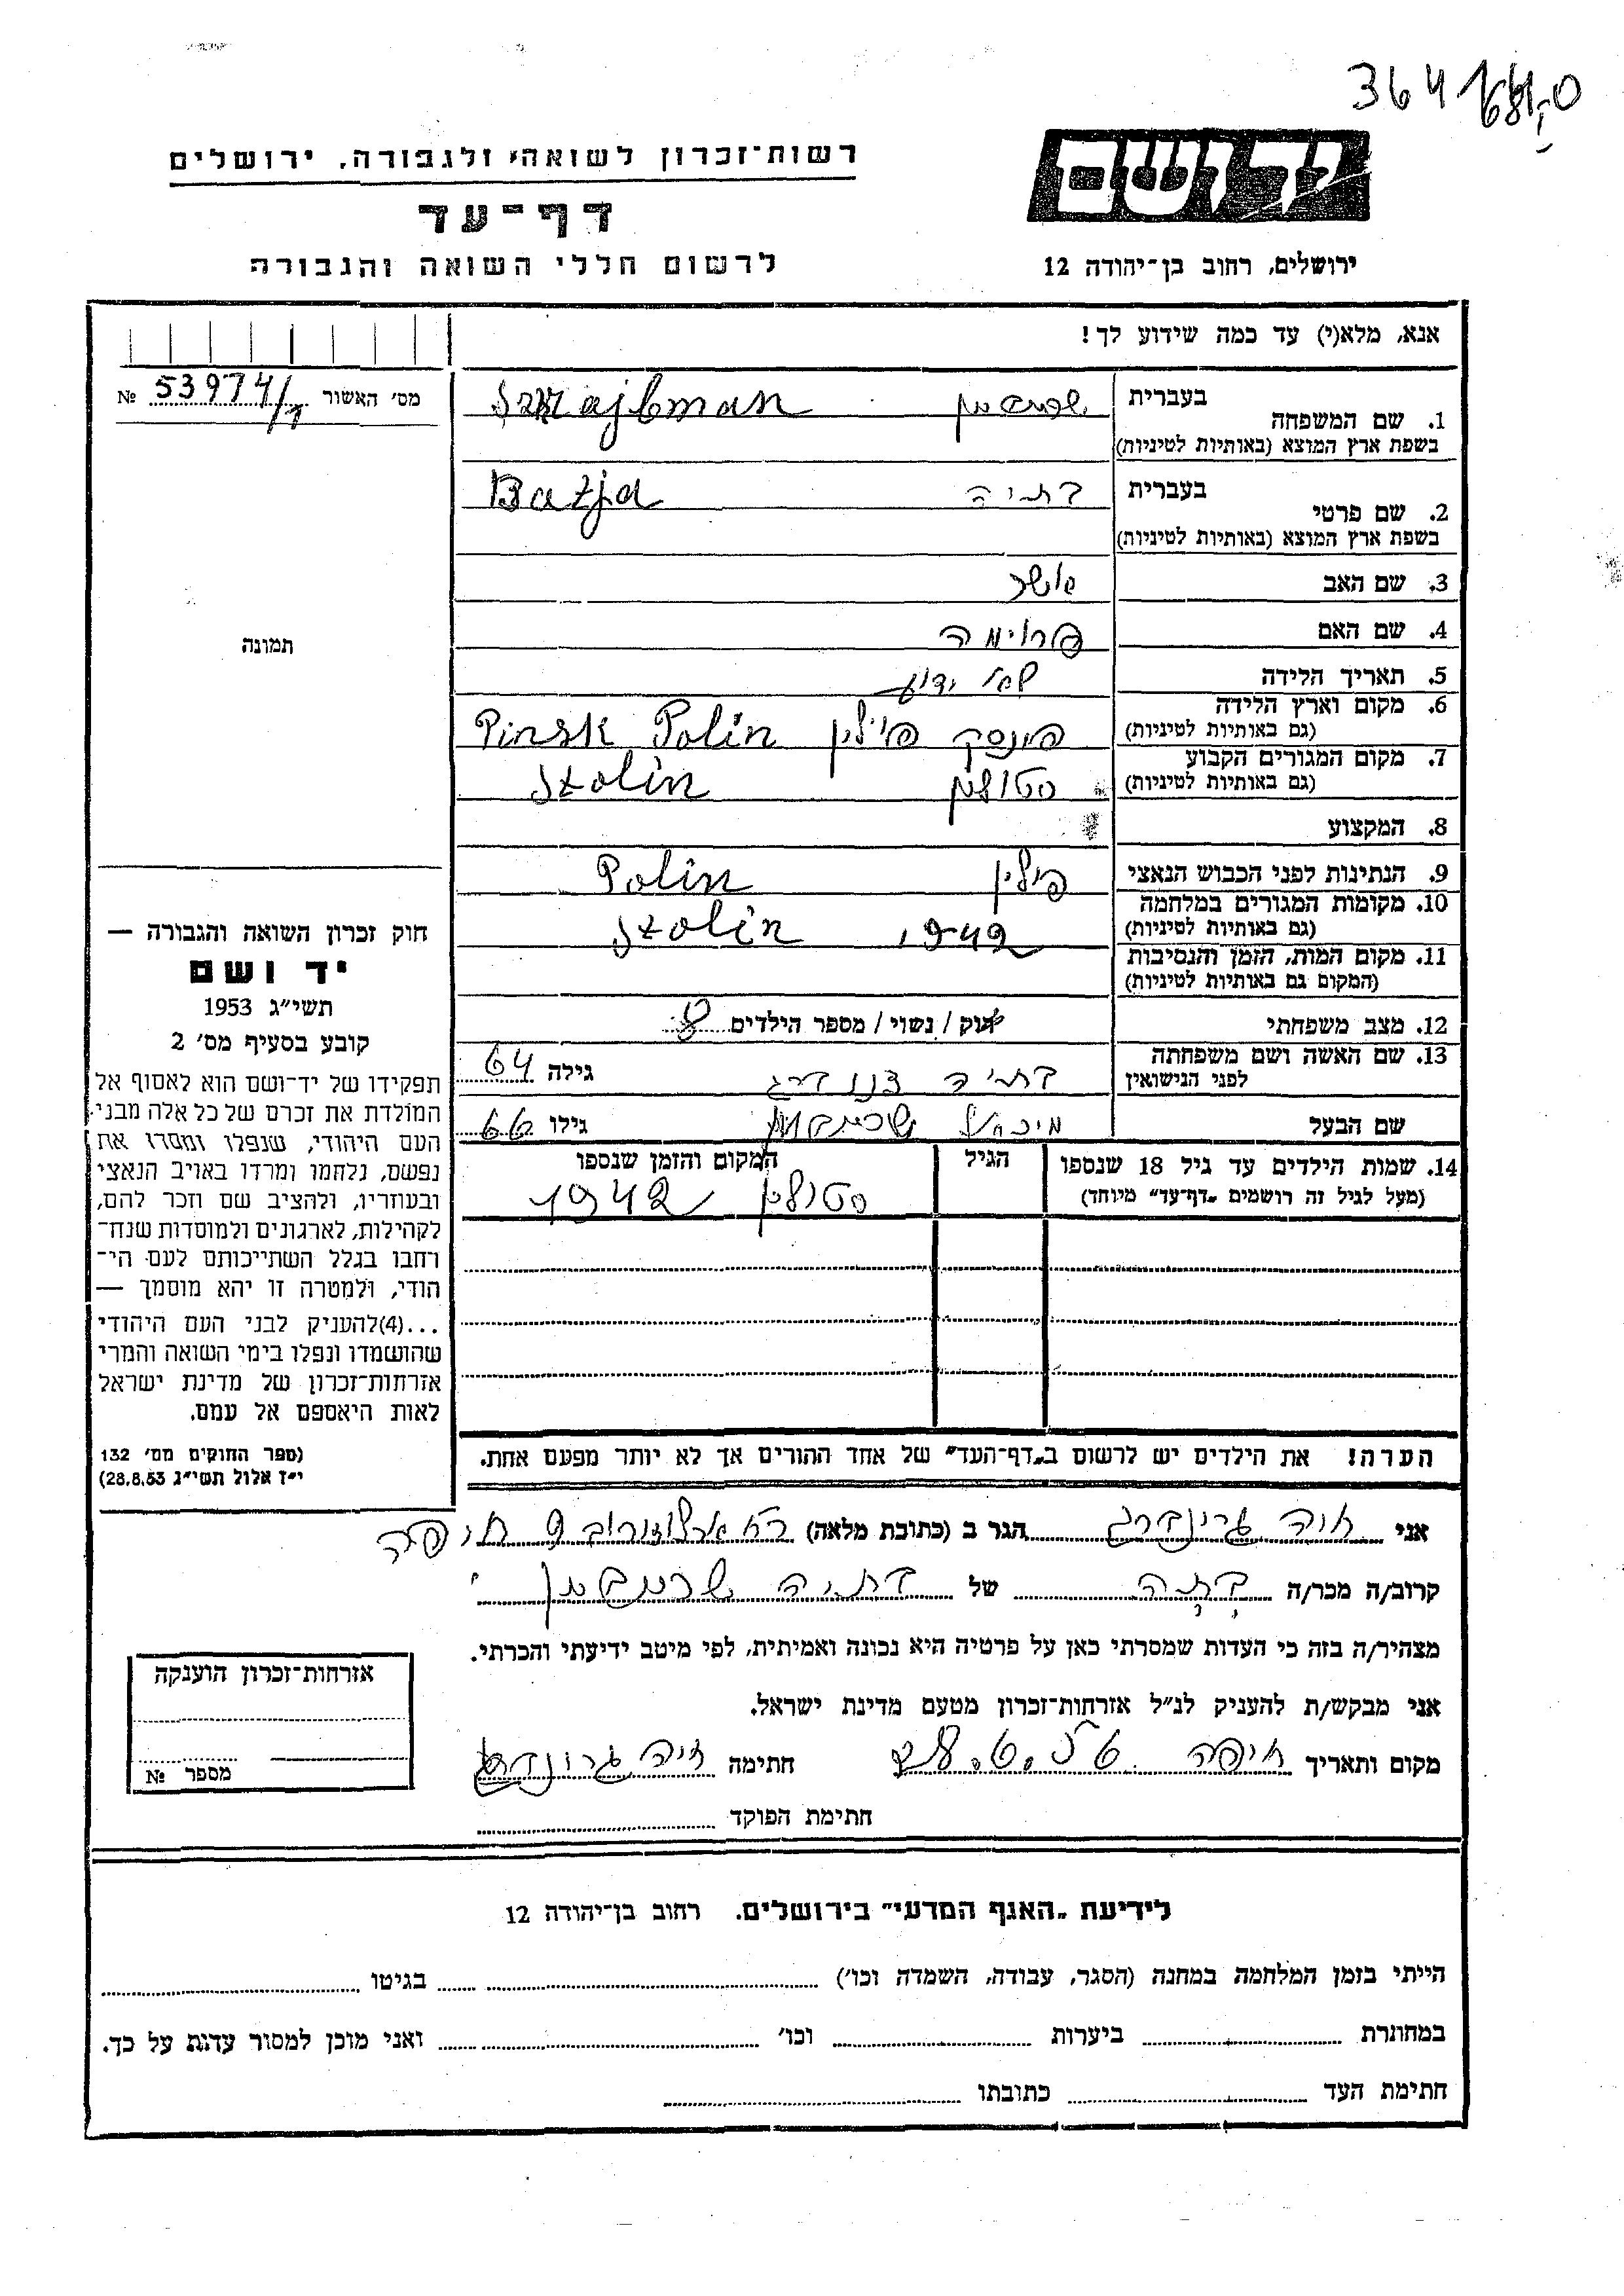 364
רשות־זכרון לשואה ולגבורה, ירושלים
דף־עד
לרשום חללי השואה והגבורה
יד ושם
ירושלים, רחוב בן־יהודה 12
אנא, מלא(י) עד כמה שידוע לך!
מס׳ האשור 53974/1 №
תמונה
בעברית
1. שם המשפחה שרייבמן Szrajbman
בשפת ארץ המוצא (באותיות לטיניות)
בעברית
2. שם פרטי בתיה Batja
בשפת ארץ המוצא (באותיות לטיניות)
3. שם האב אשר
4. שם האם פרומה
5. תאריך הלידה לא ידוע
6. מקום וארץ הלידה פינסק פולין Pinsk Polin
(גם באותיות לטיניות)
7. מקום המגורים הקבוע סטולין Stolin
(גם באותיות לטיניות)
8. המקצוע
9. הנתינות לפני הכבוש הנאצי פולין Polin
10. מקומות המגורים במלחמה 1942 Stolin
(גם באותיות לטיניות)
11. מקום המות, הזמן והנסיבות
(המקום גם באותיות לטיניות)
12. מצב משפחתי רווק / נשוי / מספר הילדים 8
13. שם האשה ושם משפחתה בתיה גילה 64
לפני הנישואין
שם הבעל מיכאל שרייבמן גילו 66
14. שמות הילדים עד גיל 18 שנספו הגיל המקום והזמן שנספו
(מעל לגיל זה רושמים „דף־עד״ מיוחד) סטולין 1942
הערה! את הילדים יש לרשום ב„דף־העד״ של אחד ההורים אך לא יותר מפעם אחת.
חוק זכרון השואה והגבורה —
יד ושם
תשי״ג 1953
קובע בסעיף מס׳ 2
תפקידו של יד־ושם הוא לאסוף אל
המולדת את זכרם של כל אלה מבני־
העם היהודי, שנפלו ומסרו את
נפשם, נלחמו ומרדו באויב הנאצי
ובעוזריו, ולהציב שם וזכר להם,
לקהילות, לארגונים ולמוסדות שנח־
רחבו בגלל השתייכותם לעם הי־
הודי, ולמטרה זו יהא מוסמך —
...(4)להעניק לבני העם היהודי
שהושמדו ונפלו בימי השואה והמרי
אזרחות־זכרון של מדינת ישראל
לאות היאספם אל עמם.
(ספר החוקים מס׳ 132
י״ז אלול תשי״ג 28.8.53)
אני חיה גרינברג הגר ב (כתובת מלאה) רח ארלוזורוב 9 חיפה
קרוב/ה מכר/ה בתה של בתיה שרייבמן
מצהיר/ה בזה כי העדות שמסרתי כאן על פרטיה היא נכונה ואמיתית, לפי מיטב ידיעתי והכרתי.
אני מבקש/ת להעניק לנ״ל אזרחות־זכרון מטעם מדינת ישראל.
מקום ותאריך חיפה חתימה חיה גרינברג
חתימת הפוקד
אזרחות־זכרון הוענקה
מספר №
לידיעת „האגף המדעי״ בירושלים. רחוב בן־יהודה 12
הייתי בזמן המלחמה במחנה (הסגר, עבודה, השמדה וכו׳) בגיטו
במחתרת ביערות וכו׳ ואני מוכן למסור עדות על כך.
חתימת העד כתובתו